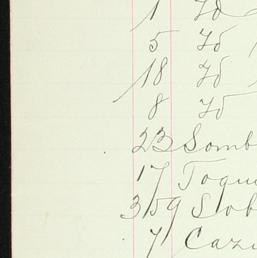 1 Id
5 Id
18 Id
8 Id
23 Somb
17 Toqu
359 Sob
7 Cazu